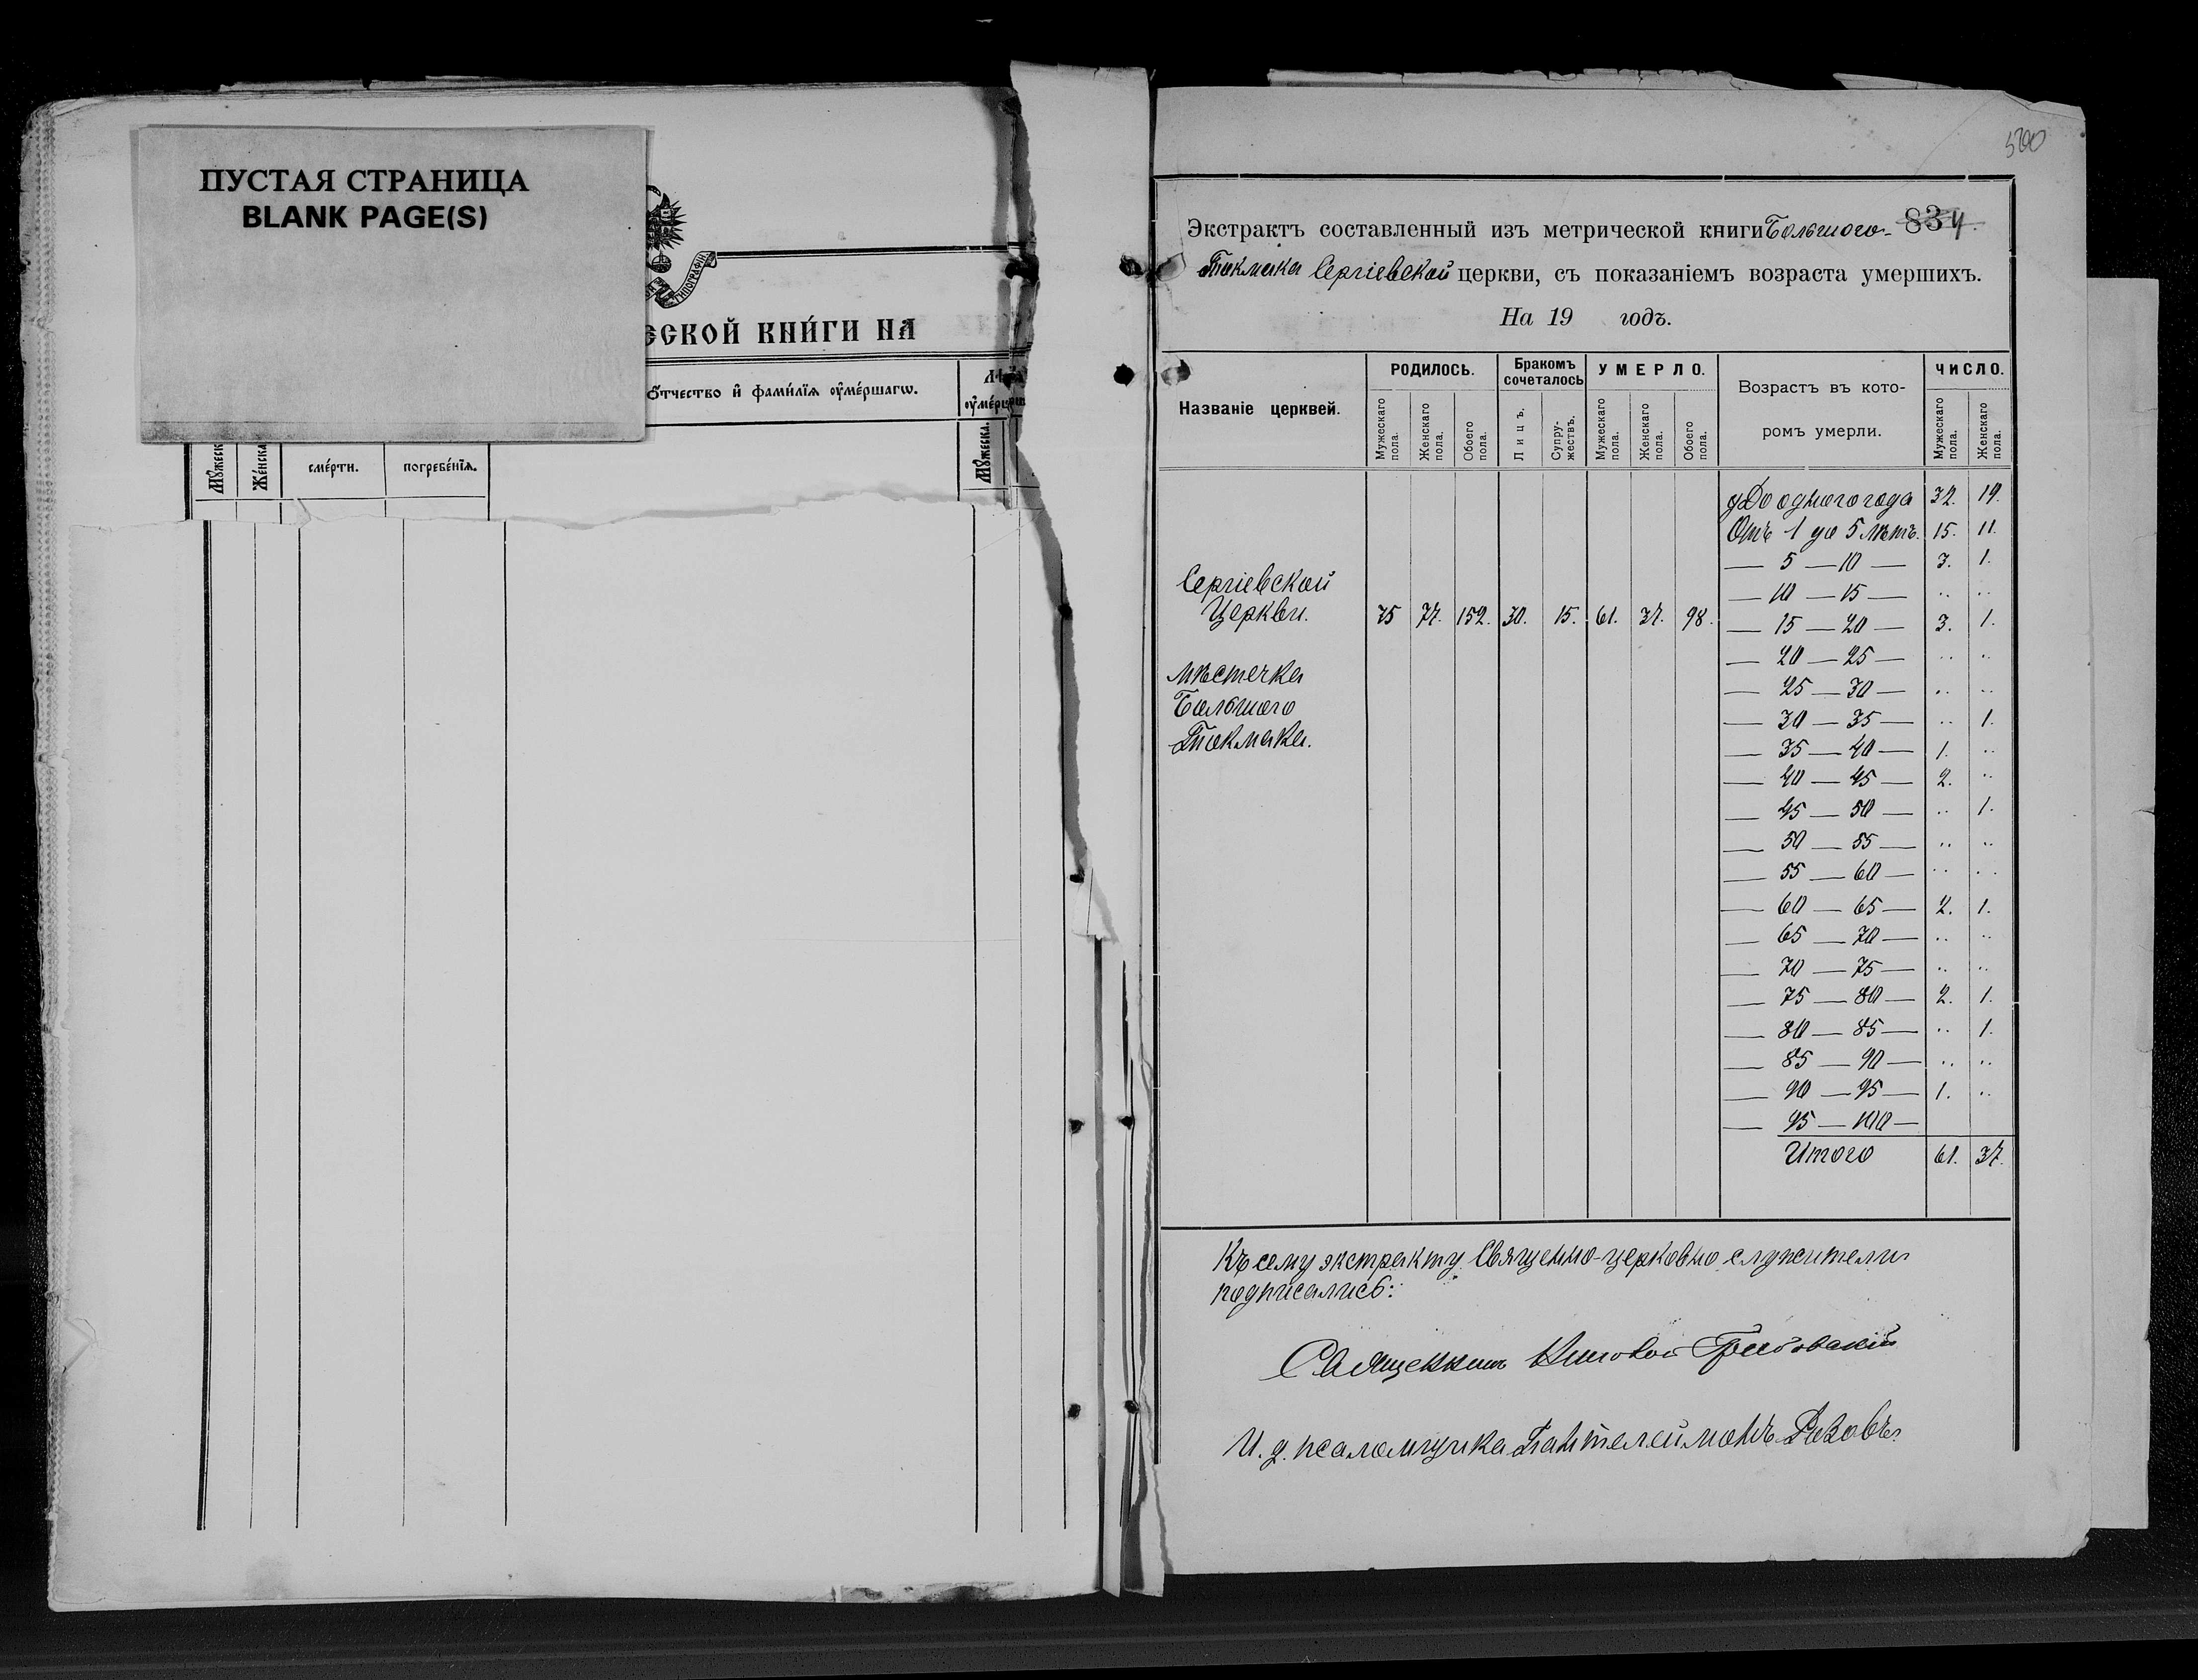 ПУСТАЯ СТРАНИЦА
BLANK PAGE(S)
ТИПОГРАФІИ
ЕСКОЙ КНИ́ГИ НА
ѻ҆́тчество и҆ фами́лїѧ ᲂу҆ме́ршагѡ.
Мꙋжеск
Же́нска
сме́рти.
погребе́нїѧ.
Мꙋжеска.
500
Экстрактъ составленный изъ метрической книги Большого- 834.
Токмака Сергіевской церкви, съ показаніемъ возраста умершихъ.
На 19 годъ.
Названіе церквей.
РОДИЛОСЬ.
Бракомъ сочеталось
УМЕРЛО.
Возрастъ въ кото-
ромъ умерли.
ЧИСЛО.
Мужескаго пола.
Женскаго пола.
Обоего пола.
Лицъ.
Супру-жествъ.
Мужескаго пола.
Женскаго пола.
Обоего пола.
Мужескаго пола.
Женскаго пола.
До одного года 32. 19.
Отъ 1 до 5 лѣтъ. 15. 11.
— 5 — 10 — 3. 1.
— 10 — 15 — .. ..
Сергіевской
Церкви. 75 77. 152. 30. 15. 61. 37. 98.
— 15 — 20 — 3. 1.
— 20 — 25 — .. ..
мѣстечка
— 25 — 30 — .. ..
Большого
— 30 — 35 — .. 1.
Токмака.
— 35 — 40 — 1. ..
— 40 — 45 — 2. ..
— 45 — 50 — .. 1.
— 50 — 55 — .. ..
— 55 — 60 — .. ..
— 60 — 65 — 2. 1.
— 65 — 70 — .. ..
— 70 — 75 — .. ..
— 75 — 80 — 2. 1.
— 80 — 85 — .. 1.
— 85 — 90 — .. ..
— 90 — 95 — 1. ..
— 95 — 100 —
Итого 61. 37.
Къ сему экстракту Священно-церковно служители
подписались:
Священникъ Николай Грибовскій
И. д. псаломщика Пантелеймонъ Рѣзовъ